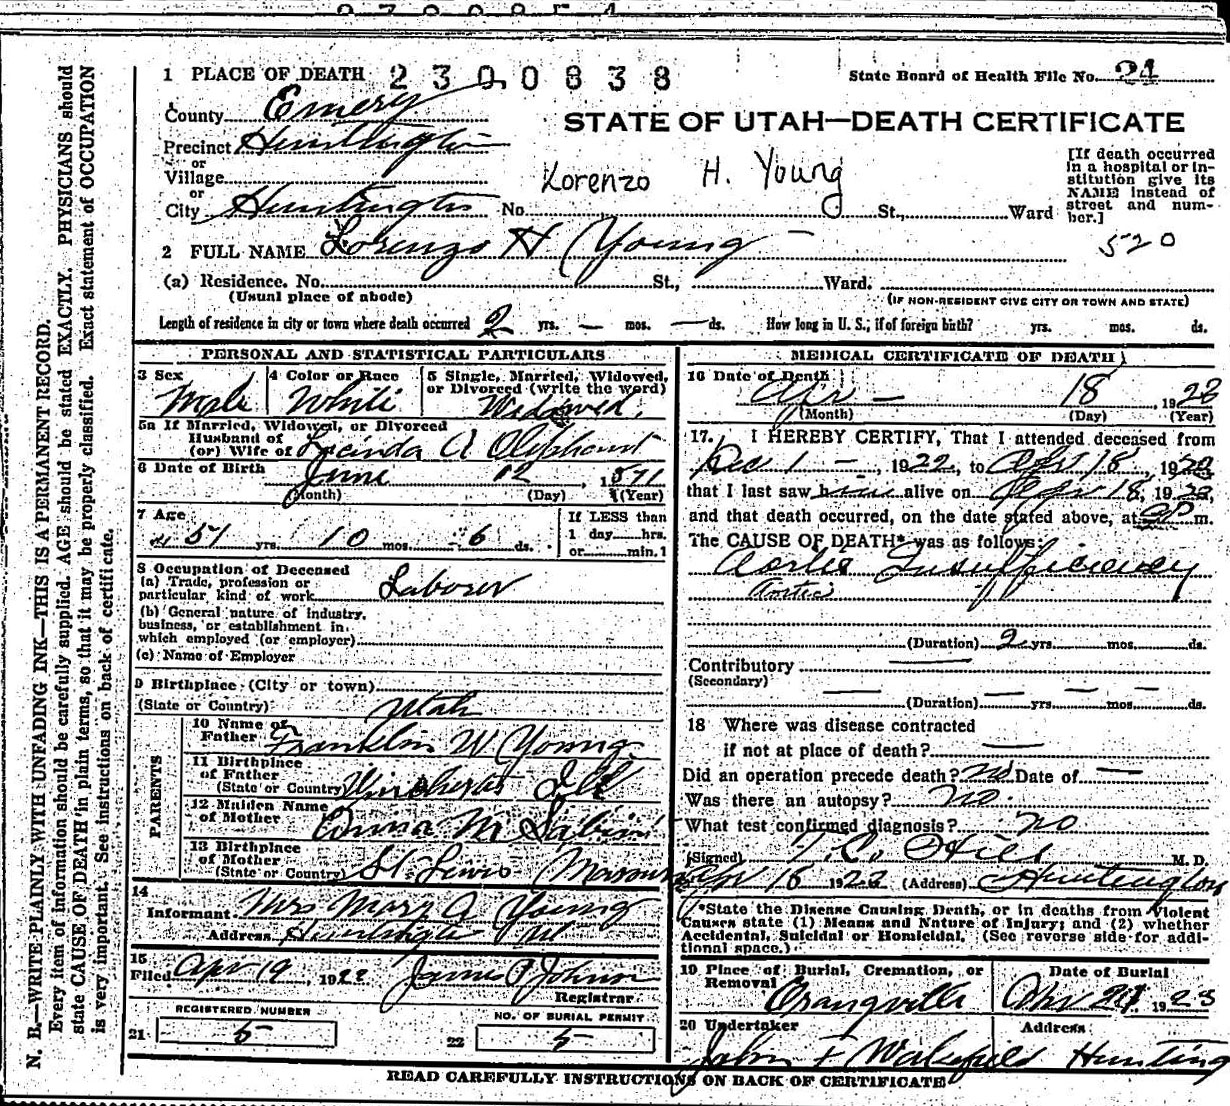 1 PLACE OF DEATH 2300838 State Board of Health File No. 21
County Emery
STATE OF UTAH—DEATH CERTIFICATE
Precinct Huntington
or
Village
or
City Huntington No. St., Ward
Lorenzo H. Young
[If death occurred
in a hospital or in-
stitution give its
NAME instead of
street and num-
ber.]
520
2 FULL NAME Lorenzo H Young
(a) Residence. No. St., Ward.
(Usual place of abode) (IF NON-RESIDENT GIVE CITY OR TOWN AND STATE)
Length of residence in city or town where death occurred 2 yrs. — mos. — ds. How long in U. S., if of foreign birth? yrs. mos. ds.
PERSONAL AND STATISTICAL PARTICULARS
3 Sex Male
4 Color or Race White
5 Single, Married, Widowed,
or Divorced (write the word)
Widowed.
5a If Married, Widowed, or Divorced
Husband of
(or) Wife of Lucinda A Oliphant
6 Date of Birth June 12, 1871
(Month) (Day) (Year)
7 Age 51 yrs. 10 mos. 6 ds.
If LESS than
1 day hrs.
or min.
8 Occupation of Deceased
(a) Trade, profession or
particular kind of work Laborer
(b) General nature of industry,
business, or establishment in
which employed (or employer)
(c) Name of Employer
9 Birthplace (City or town)
(State or Country) Utah
PARENTS
10 Name of
Father Franklin W Young
11 Birthplace
of Father
(State or Country) Ill
12 Maiden Name
of Mother Emma M Sabin
13 Birthplace
of Mother
(State or Country) St. Lewis Missouri
14
Informant Mrs Mary A Young
Address Huntington Ut
15
Filed Apr 19 1922 James P Johnson
Registrar
REGISTERED NUMBER
21 5
NO. OF BURIAL PERMIT
22 5
MEDICAL CERTIFICATE OF DEATH
16 Date of Death
Apr — 18, 1923
(Month) (Day) (Year)
17. I HEREBY CERTIFY, That I attended deceased from
Dec 1 —, 1922, to Apr 18, 1923
that I last saw him alive on Apr 18, 1923,
and that death occurred, on the date stated above, at m.
The CAUSE OF DEATH* was as follows:
Aortic Insufficiency
Aortic
(Duration) 2 yrs. mos. ds.
Contributory —
(Secondary)
(Duration) — yrs — mos — ds.
18 Where was disease contracted
if not at place of death? —
Did an operation precede death? no Date of —
Was there an autopsy? no.
What test confirmed diagnosis? no
(Signed) T.C. Hill M. D.
Apr 18 1923 (Address) Huntington
*State the Disease Causing Death, or in deaths from Violent
Causes state (1) Means and Nature of Injury; and (2) whether
Accidental, Suicidal or Homicidal. (See reverse side for addi-
tional space.)
19 Place of Burial, Cremation, or
Removal
Orangville
Date of Burial
Apr 1923
20 Undertaker Address
John F Wakefield Hunting
READ CAREFULLY INSTRUCTIONS ON BACK OF CERTIFICATE
N. B.—WRITE PLAINLY WITH UNFADING INK—THIS IS A PERMANENT RECORD.
Every item of information should be carefully supplied. AGE should be stated EXACTLY. PHYSICIANS should
state CAUSE OF DEATH in plain terms, so that it may be properly classified. Exact statement of OCCUPATION
is very important. See instructions on back of certificate.